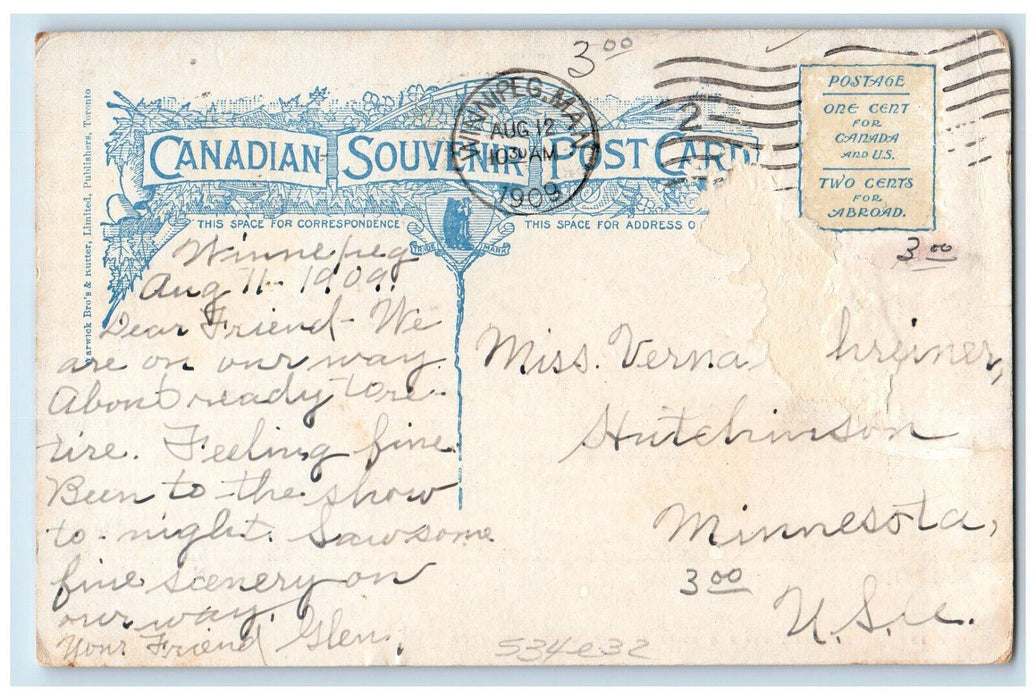 3 00
CANADIAN SOUVENIR POST CARD
WINNIPEG. MAN
AUG 12
10 30 AM
1909
2
POSTAGE
ONE CENT
FOR
CANADA
AND U.S.
TWO CENTS
FOR
ABROAD.
Warwick Bro's & Rutter, Limited, Publishers, Toronto
THIS SPACE FOR CORRESPONDENCE
TRADE MARK
THIS SPACE FOR ADDRESS O
3 00
Winnepeg
Aug 11- 1909.
Dear Friend- We
are on our way.
About ready to re-
tire. Feeling fine.
Been to the show
to-night. Saw some
fine scenery on
our way.
Your Friend Glen.
Miss. Verna hreiner,
Hutchinson
Minnesota,
3 00
U.S.a.
534-e32